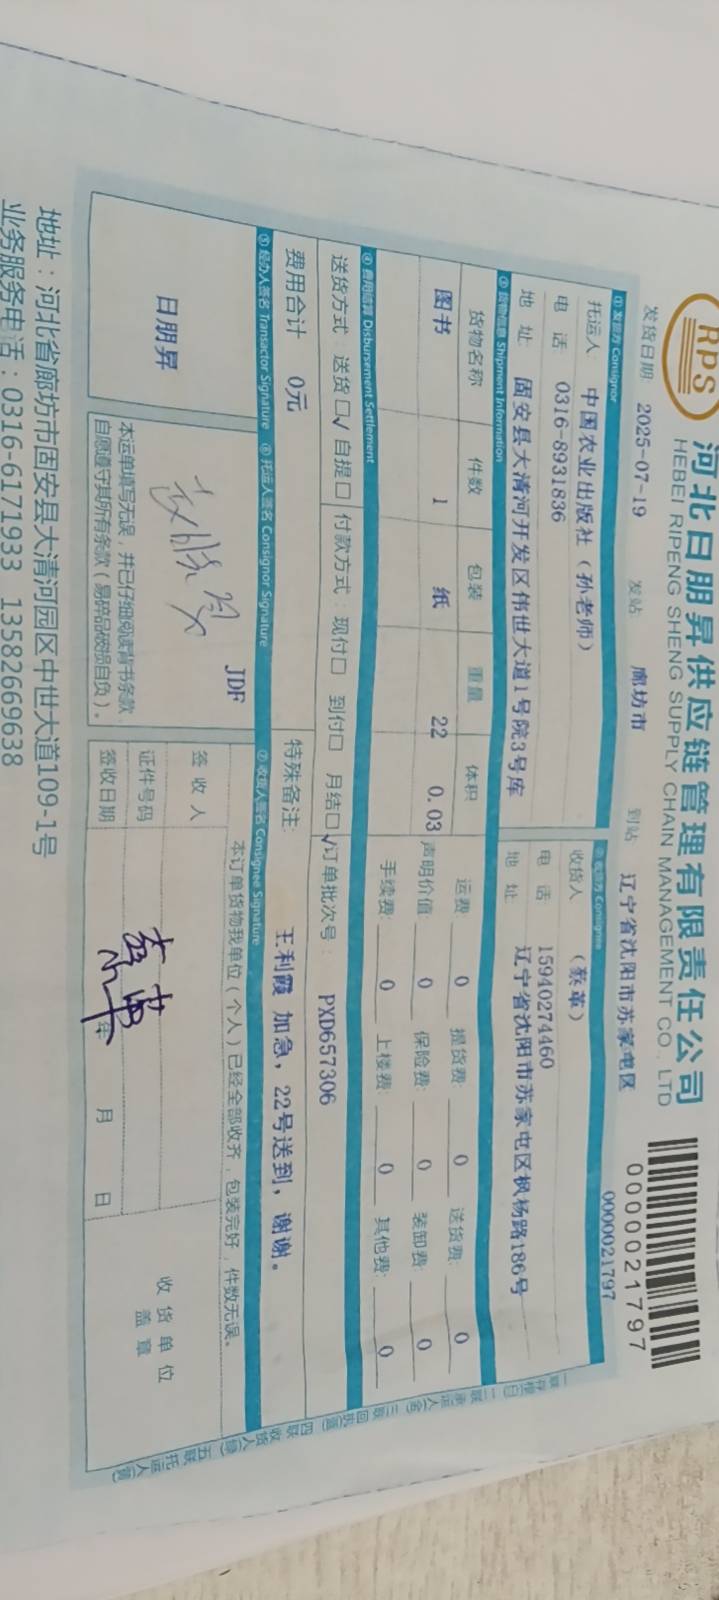 RPS
河北日朋昇供应链管理有限责任公司
HEBEI RIPENG SHENG SUPPLY CHAIN MANAGEMENT CO., LTD
0000021797
发货日期 2025-07-19 发站 廊坊市 到站 辽宁省沈阳市苏家屯区
0000021797
① 发货方 Consignor
托运人 中国农业出版社（孙老师）
电话 0316-8931836
地址 固安县大清河开发区伟世大道1号院3号库
② 收货方 Consignee
收货人 （蔡革）
电话 15940274460
地址 辽宁省沈阳市苏家屯区枫杨路186号
③ 货物信息 Shipment Information
货物名称 件数 包装 重量 体积
图书 1 纸 22 0.03
运费: 0 提货费: 0 送货费: 0
声明价值 0 保险费: 0 装卸费: 0
手续费: 0 上楼费: 0 其他费: 0
④ 费用结算 Disbursement Settlement
送货方式: 送货☐√ 自提☐ 付款方式: 现付☐ 到付☐ 月结☐√ 订单批次号: PXD657306
费用合计 0元
特殊备注: 王利霞 加急，22号送到，谢谢。
⑤ 经办人签名 Transactor Signature ⑥ 托运人签名 Consignor Signature ⑦ 收货人签名 Consignee Signature
日朋昇
JDF
本运单填写无误，并已仔细阅读背书条款，
自愿遵守其所有条款（易碎品破损自负）。
本订单货物我单位（个人）已经全部收齐，包装完好，件数无误。
签收人
证件号码
签收日期 年 月 日
收货单位
盖章
一联存根(白) 二联承运人(金) 三联回执(蓝) 四联收货人(绿) 五联托运人(黄)
地址：河北省廊坊市固安县大清河园区中世大道109-1号
业务服务电话：0316-6171933 13582669638